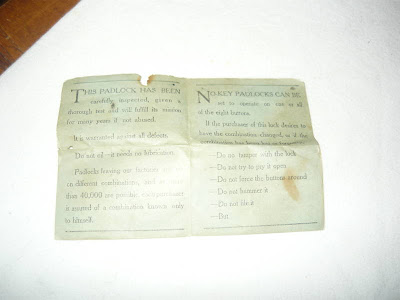 THIS PADLOCK HAS BEEN
carefully inspected, given a
thorough test and will fulfil its mission
for many years if not abused.
It is warranted against all defects.
Do not oil—it needs no lubrication.
Padlocks leaving our factory are set
on different combinations, and as more
than 40,000 are possible, each purchaser
is assured of a combination known only
to himself.
NO-KEY PADLOCKS CAN BE
set to operate on one or all
of the eight buttons.
If the purchaser of this lock desires to
have the combination changed, or if the
combination has been lost or forgotten
—Do not tamper with the lock
—Do not try to pry it open
—Do not force the buttons around
—Do not hammer it
—Do not file it
—But